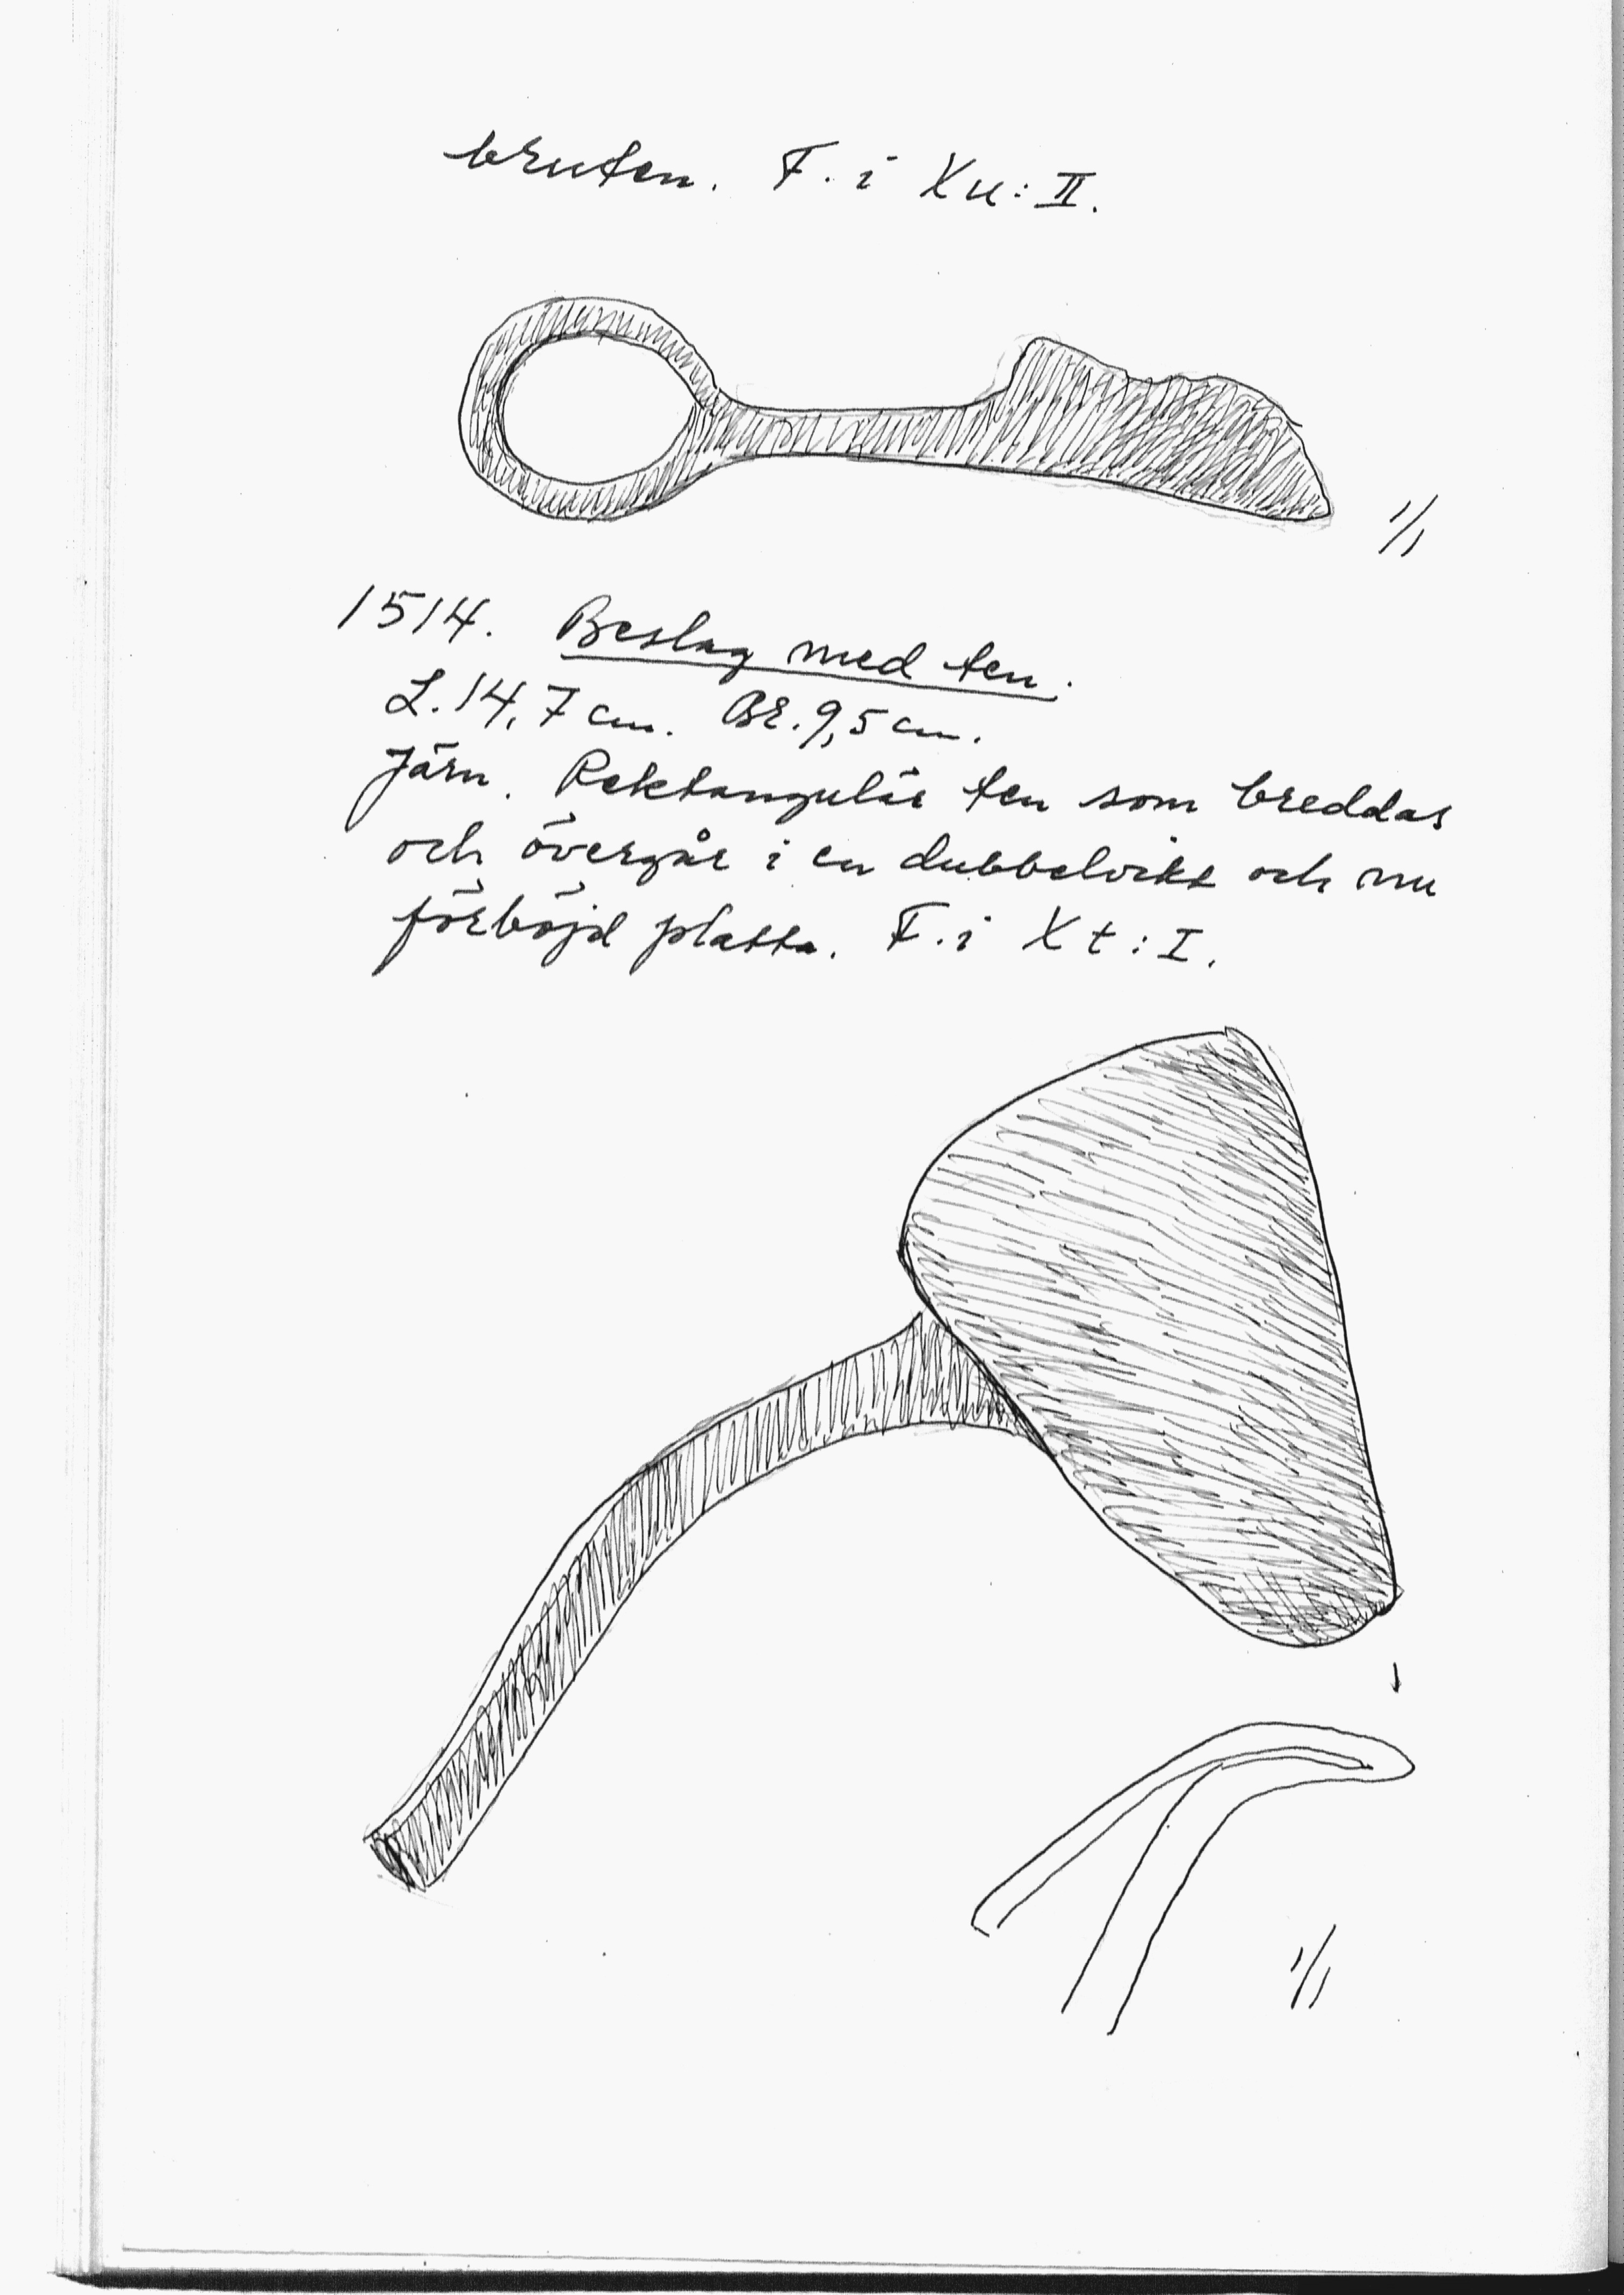 bruten. F. i Xu: II.
1/1
1514. Beslag med ten.
L. 14,7 cm. Br. 9,5 cm.
Järn. Rektangulär ten som breddas
och övergår i en dubbelvikt och nu
förböjd platta. F. i Xt: I.
1/1